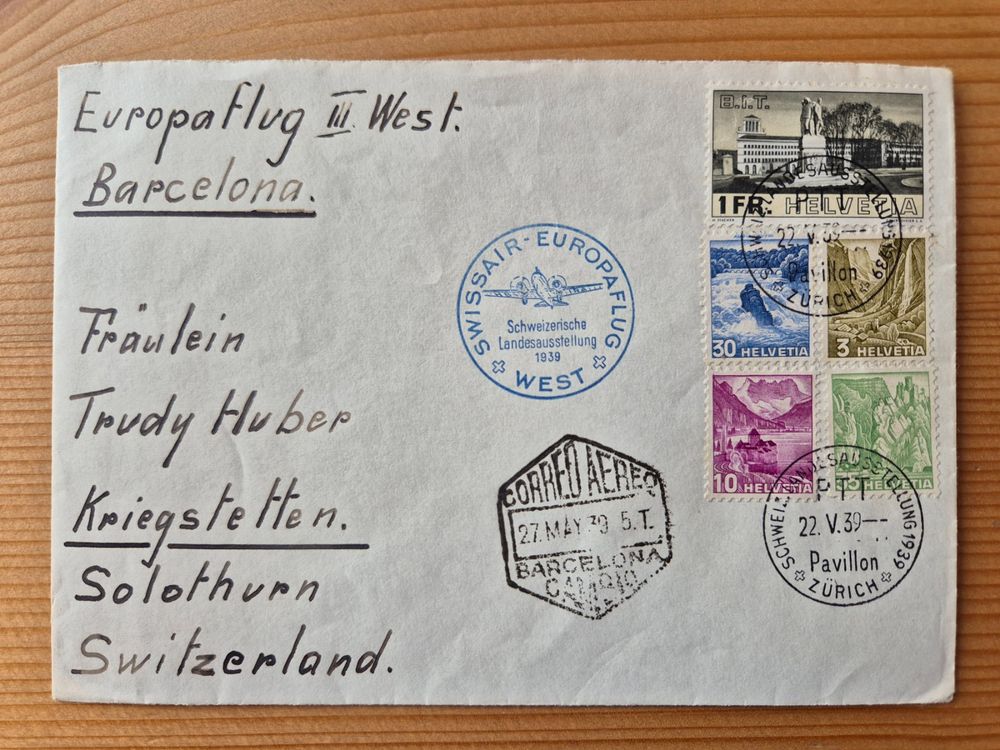 Europaflug III West.
Barcelona.
Fräulein
Trudy Huber
Kriegstetten.
Solothurn
Switzerland.
SWISSAIR-EUROPAFLUG
Schweizerische
Landesausstellung
1939
WEST
CORREO AEREO
27. MAY. 39 5.T.
BARCELONA
B.I.T.
1 FR. HELVETIA
SCHWEIZ. LANDESAUSSTELLUNG 1939
PTT
22. V. 39
Pavillon
ZÜRICH
30 HELVETIA
3 HELVETIA
10 HELVETIA
5 HELVETIA
SCHWEIZ. LANDESAUSSTELLUNG 1939
PTT
22. V. 39
Pavillon
ZÜRICH